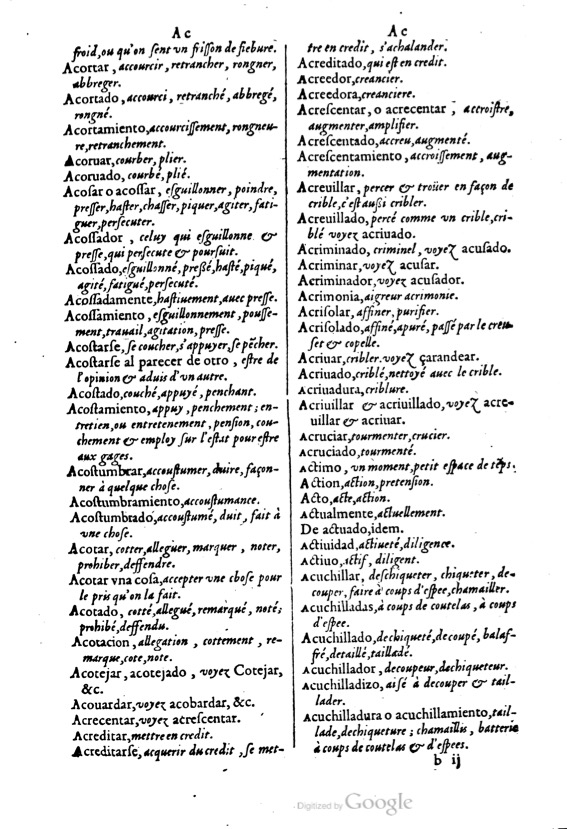 A c
froid, ou qu'on sent vn frisson de fiebure.
Acortar, accourcir, retrancher, rongner,
abbreger.
Acortado, accourci, retranché, abbregé,
rongné.
Acortamiento, accourcissement, rongneu-
re, retranchement.
Acoruar, courber, plier.
Acoruado, courbé, plié.
Acoſar o acoſſar, eſguillonner, poindre,
preſſer, haſter, chaſſer, piquer, agiter, fati-
guer, perſecuter.
Acoſſador, celuy qui eſguillonne &
preſſe, qui perſecute & pourſuit.
Acoſſado, eſguillonné, preßé, haſté, piqué,
agité, fatigué, perſecuté.
Acoſſadamente, haſtiuement, auec preſſe.
Acoſſamiento, eſguillonnement, pouſſe-
ment, trauail, agitation, preſſe.
Acoſtarſe, ſe coucher, s'appuyer, ſe pẽcher.
Acoſtarſe al parecer de otro, eſtre de
l'opinion & aduis d'vn autre.
Acoſtado, couché, appuyé, penchant.
Acoſtamiento, appuy, penchement; en-
tretien, ou entretenement, penſion, cou-
chement & employ ſur l'eſtat pour eſtre
aux gages.
Acoſtumbrar, accouſtumer, duire, façon-
ner à quelque choſe.
Acoſtumbramiento, accouſtumance.
Acoſtumbrado, accouſtumé, duit, fait à
vne choſe.
Acotar, cotter, alleguer, marquer, noter,
prohiber, deffendre.
Acotar vna coſa, accepter vne choſe pour
le pris qu'on la fait.
Acotado, cotté, allegué, remarqué, noté;
prohibé, deffendu.
Acotacion, allegation, cottement, re-
marque, cote, note.
Acotejar, acotejado, voyez Cotejar,
&c.
Acouardar, voyez acobardar, &c.
Acrecentar, voyez acreſcentar.
Acreditar, mettre en credit.
Acreditarſe, acquerir du credit, ſe met-
A c
tre en credit, s'achalander.
Acreditado, qui eſt en credit.
Acreedor, creancier.
Acreedora, creanciere.
Acreſcentar, o acrecentar, accroiſtre,
augmenter, amplifier.
Acreſcentado, accreu, augmenté.
Acreſcentamiento, accroiſſement, aug-
mentation.
Acreuillar, percer & troüer en façon de
crible, c'eſt außi cribler.
Acreuillado, percé comme vn crible, cri-
blé voyez acriuado.
Acriminado, criminel, voyez acuſado.
Acriminar, voyez acuſar.
Acriminador, voyez acuſador.
Acrimonia, aigreur acrimonie.
Acriſolar, affiner, purifier.
Acriſolado, affiné, apuré, paſſé par le creu
ſet & copelle.
Acriuar, cribler. voyez çarandear.
Acriuado, criblé, nettoyé auec le crible.
Acriuadura, criblure.
Acriuillar & acriuillado, voyez acre-
uillar & acriuar.
Acruciar, tourmenter, crucier.
Acruciado, tourmenté.
Actimo, vn moment, petit eſpace de tẽps.
Action, action, pretenſion.
Acto, acte, action.
Actualmente, actuellement.
De actuado, idem.
Actiuidad, actiueté, diligence.
Actiuo, actif, diligent.
Acuchillar, deſchiqueter, chiqueter, de-
couper, faire à coups d'eſpee, chamailler.
Acuchilladas, à coups de coutelas, à coups
d'eſpee.
Acuchillado, dechiqueté, decoupé, balaf-
fré, detaillé, taillade.
Acuchillador, decoupeur, dechiqueteur.
Acuchilladizo, aiſé à decouper & tail-
lader.
Acuchilladura o acuchillamiento, tail-
lade, dechiqueture; chamaillis, batterie
à coups de coutelas & d'eſpees.
b ij
Digitized by Google